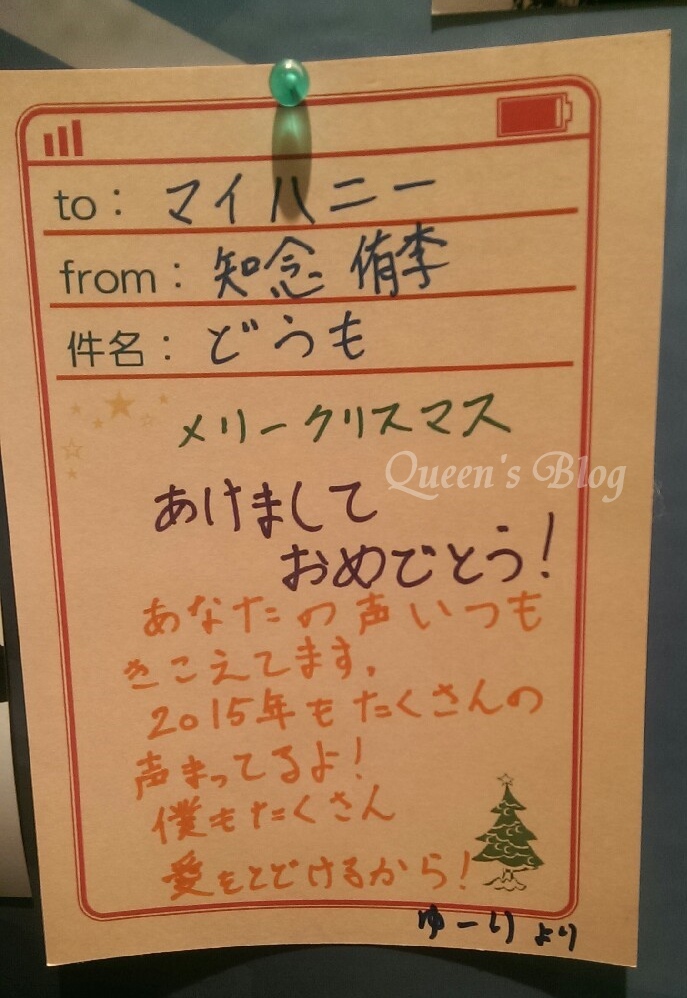 to: マイハニー
from: 知念 侑李
件名: どうも
メリークリスマス
Queen's Blog
あけまして
おめでとう!
あなたの声いつも
きこえてます。
2015年もたくさんの
声まってるよ!
僕もたくさん
愛をとどけるから!
ゆーりより